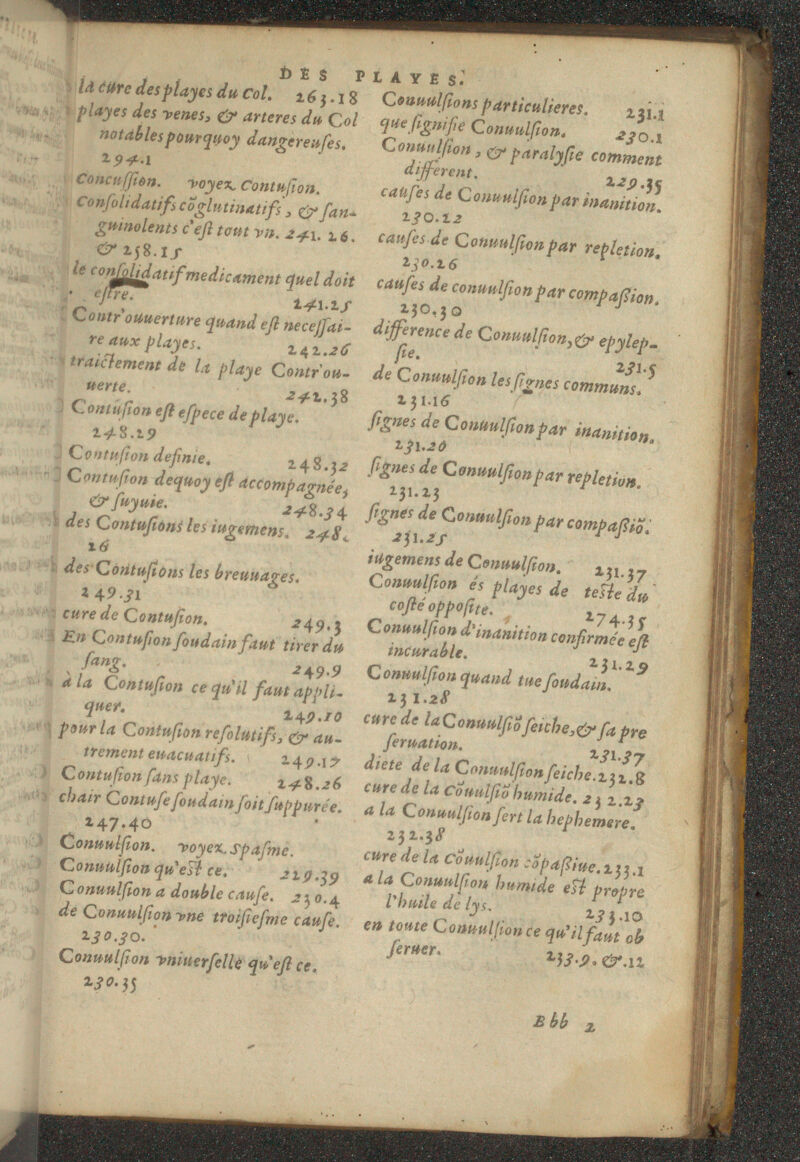 DES PLAYES.
la cure des playes du Col. 263.18
playes des venes, & arteres du Col
notables pourquoy dangereuses.
294.1
Concussion. voyez Contusion.
Consolidatifs cõglutinatifs, & san-
guinolents c'est tout vn. 241. 26.
& 258.15
le consolidatif medicament quel doit
estre. 241.25
Contr'ouuerture quand est necessai-
re aux playes. 242.26
traictement de la playe Contr'ou-
uerte. 242.38
Contusion est espece de playe.
248.29
Contusion definie. 248.32
Contusion dequoy est accompagnée,
& suyuie. 248.34
des Contusions les iugemens. 248.
16
des Contusions les breuuages.
249.31
cure de Contusion. 249.3
En Contusion soudain faut tirer du
sang. 249.9
a la Contusion ce qu'il faut appli-
quer. 249.10
pour la Contusion resolutifs, & au-
trement euacuatifs. 249.17
Contusion sans playe. 248.26
chair Contuse soudain soit suppurée.
247.40
Conuulsion. voyez Spasme.
Conuulsion qu'est ce. 229.39
Conuulsion a double cause. 230.4
de Conuulsion vne troisiesme cause.
230.30.
Conuulsion vniuerselle qu'est ce.
230.35
Conuulsions particulieres. 231.1
que signifie Conuulsion. 230.1
Conuulsion, & paralysie comment
different. 229.35
causes de Conuulsion par inanition.
230.12
causes de Conuulsion par repletion.
230.26
causes de conuulsion par compaßion.
230.30
difference de Conuulsion, & epylep-
sie. 231.5
de Conuulsion les signes communs.
231.16
signes de Conuulsion par inanition.
231.20
signes de Conuulsion par repletion.
231.23
signes de Conuulsion par compaßiõ.
231.25
iugemens de Conuulsion. 231.37
Conuulsion és playes de teste du
costé opposite. 274.35
Conuulsion d'inanition confirmée est
incurable. 231.29
Conuulsion quand tue soudain.
231.28
cure de la Conuulsiõ seiche, & sa pre
seruation. 231.37
diete de la Conuulsion seiche. 232.8
cure de la Cõuulsiõ humide. 232.23
a la Conuulsion sert la hephemere.
232.38
cure de la Cõuulsion cõpaßiue. 233.1
a la Conuulsion humide est propre
l'huile de lys. 233.10
en toute Conuulsion ce qu'il faut ob
seruer. 233.9. &.12
Bbb 2